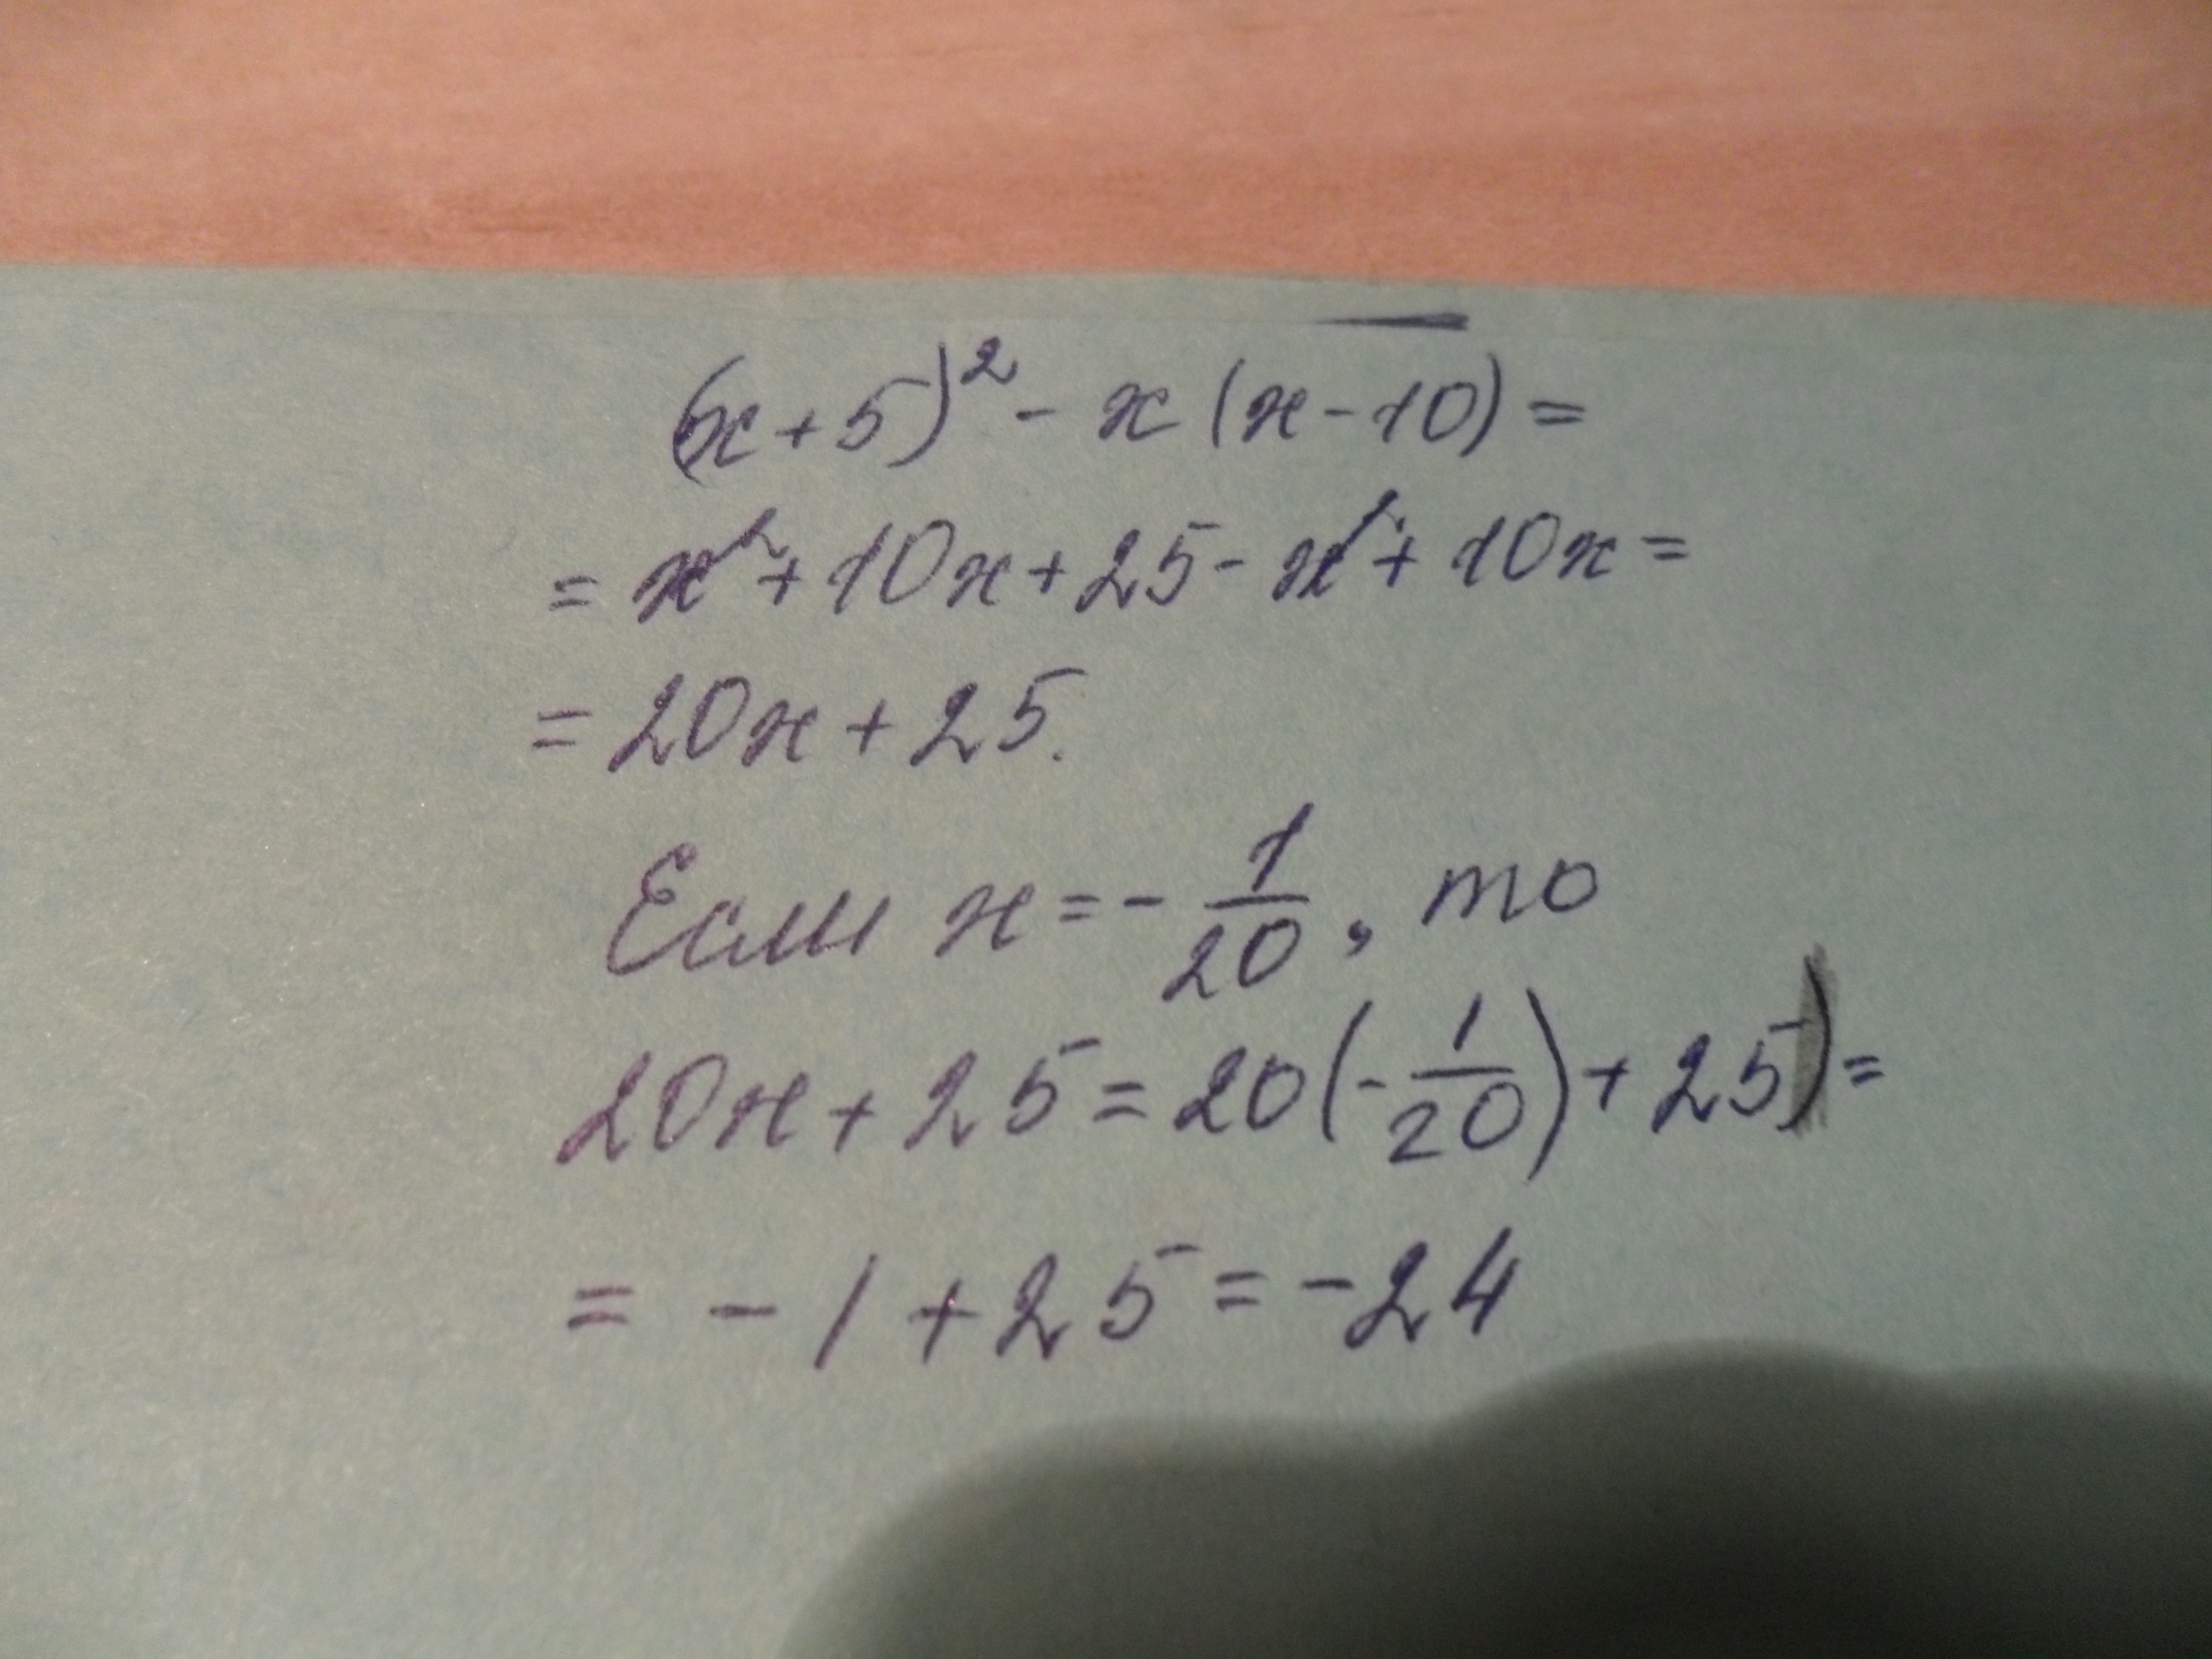 (x+5)² - x(x-10)=
= x² + 10x + 25 - x² + 10x =
= 20x + 25.
Если x = - 1/20, то
20x + 25 = 20(- 1/20) + 25) =
= - 1 + 25 = - 24